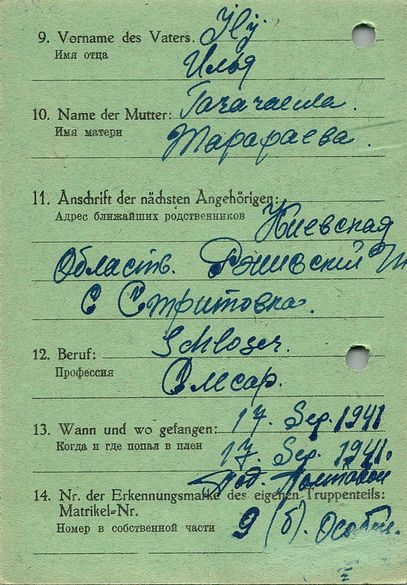 9. Vorname des Vaters.
Имя отца
Илья
10. Name der Mutter:
Имя матери
Тарараева.
11. Anschrift der nächsten Angehörigen:
Адрес ближайших родственников
Киевская
Область.
С Стритовка.
12. Beruf: Schlosser.
Профессия Слесар.
13. Wann und wo gefangen: 17. Sep. 1941
Когда и где попал в плен 17. Sep. 1941.
Под. Полтавой
14. Nr. der Erkennungsmarke des eigenen Truppenteils:
Matrikel-Nr.
Номер в собственной части 9 (б).